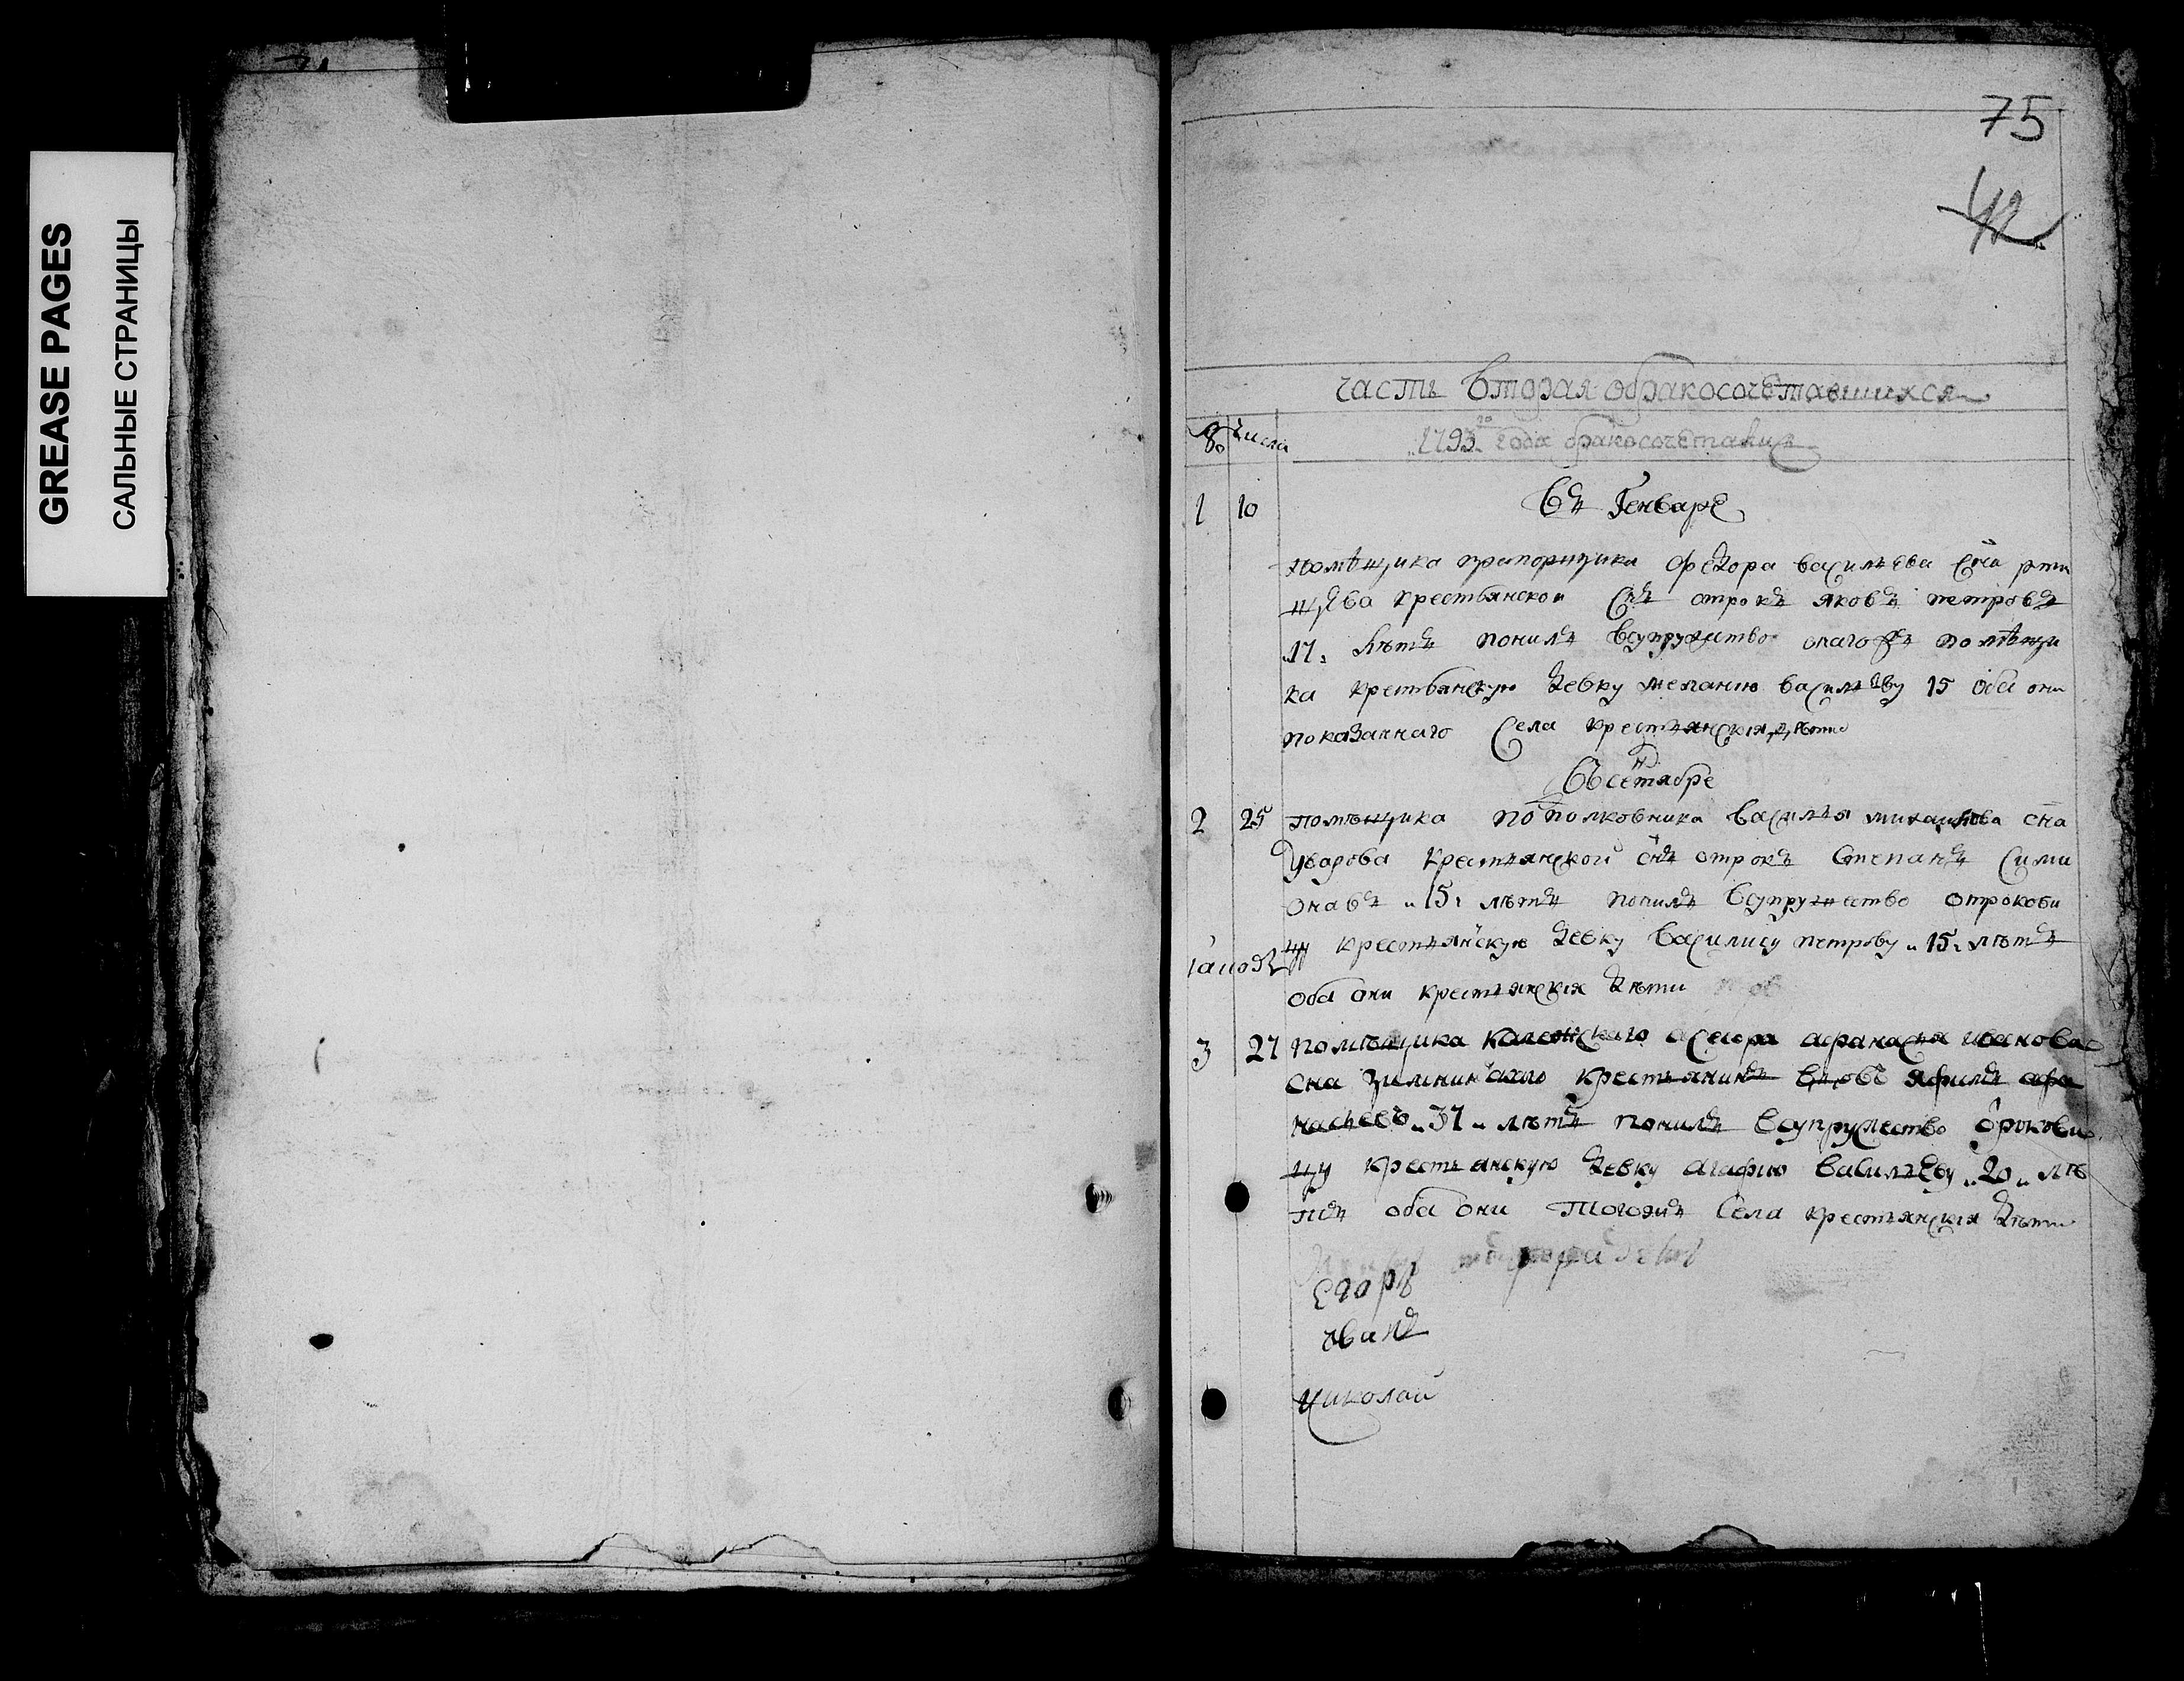 GREASE PAGES
САЛЬНЫЕ СТРАНИЦЫ
75
42
часть вторая обракосочетавшихся
числа
1793го года бракосочетания
1 10 въ Генваре
помѣщика прапорщика Федора васильева сна рти
щева крестьянской снъ отрокъ яковъ петровъ
17 лѣтъ понилъ всупружство онагожъ помѣщи
ка крестьянскую девку меланию васильеву 15 оба они
показаннаго села крестьянския дѣти
въ сентябре
2 25 помѣщика подполковника василья михайлова сна
уварова крестьянской снъ отрокъ степанъ сими
оновъ 15 лѣтъ понилъ всупружество отрокови
цу крестьянскую девку василису петрову 15 лѣтъ
оба они крестьянския дѣти
3 27 помѣщика колежскаго асесора афанасья иванова
сна зимнинскаго крестьянинъ вдовъ яфимъ афа
насьевъ 37 лѣтъ понилъ всупружество отрокови
цу крестьянскую девку агафию васильеву 20 лѣ
тъ оба они тогожъ села крестьянския дѣти
Егоръ
иванъ
николай